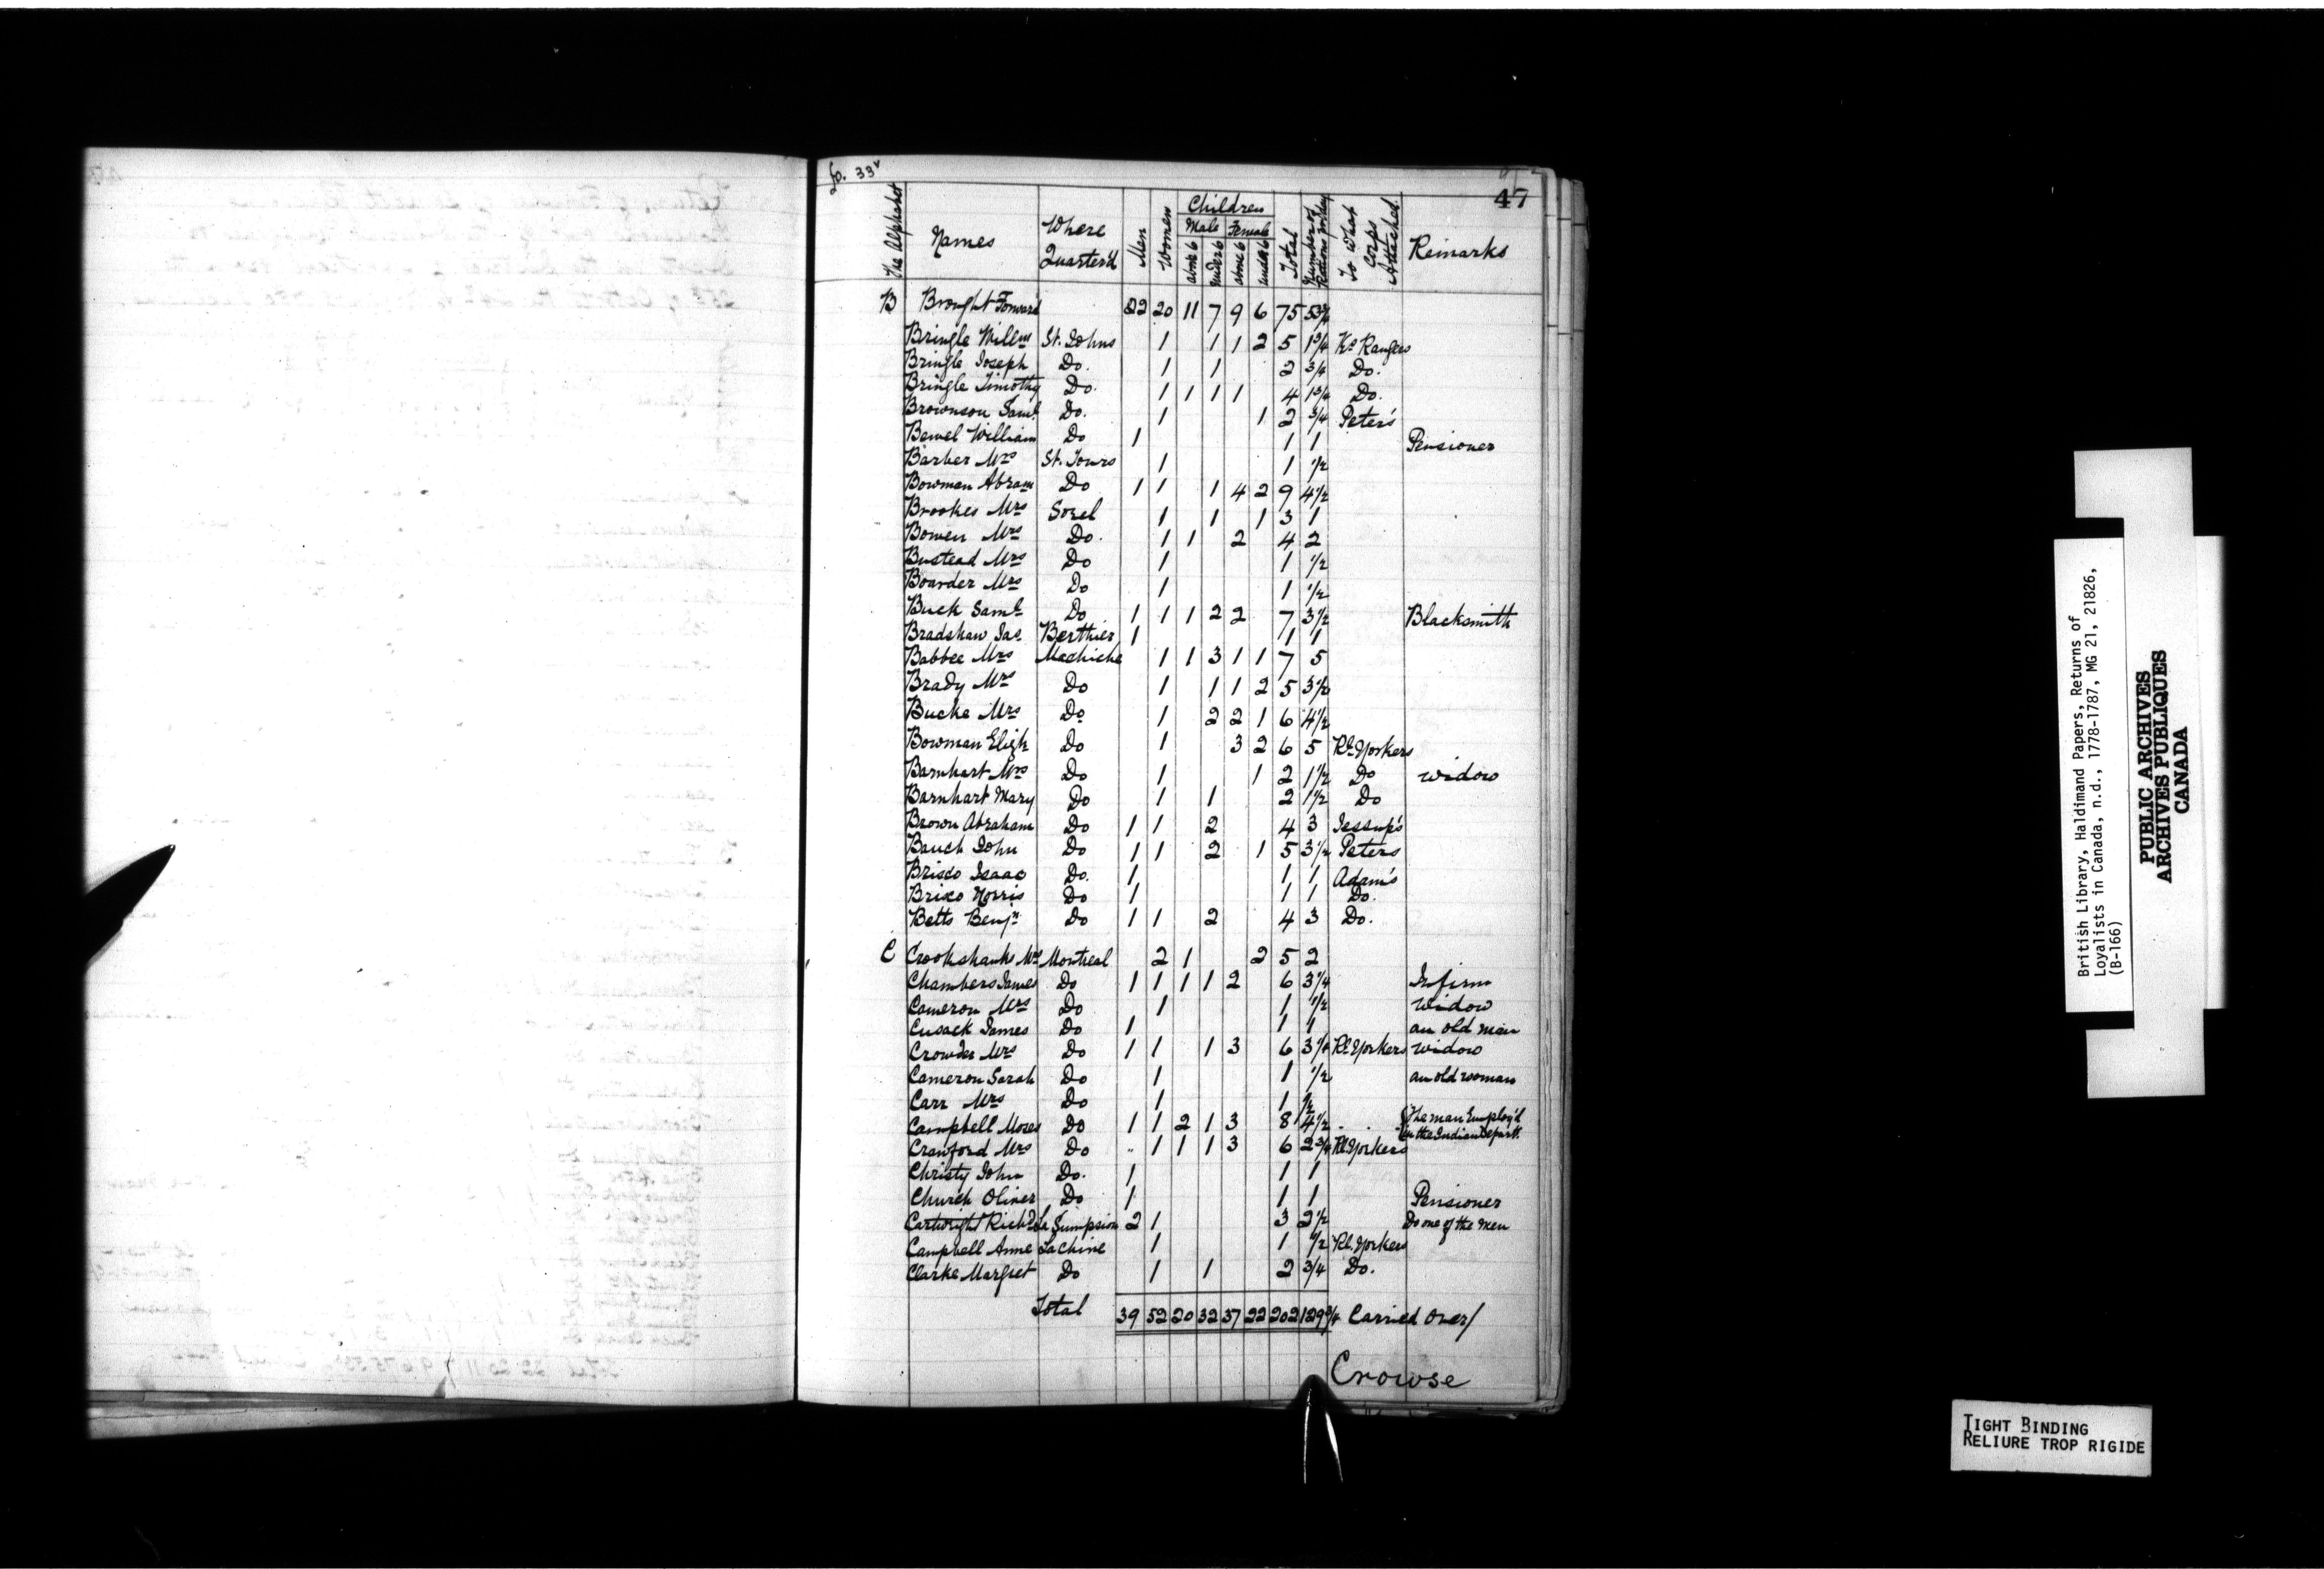 fo. 33v
47
The Alphabet Names Where Quarter'd Men Women Children Male above 6 under 6 Female above 6 under 6 Total Number of Rations To What Corps Attached. Remarks
B Brought Forward 22 20 11 7 9 6 75 53¾
Bringle Willm St. Johns 1 1 1 2 5 1¾ Ks Rangers
Bringle Joseph Do. 1 1 2 ¾ Do.
Bringle Timothy Do. 1 1 1 1 4 1¾ Do.
Brownson Saml. Do. 1 1 2 ¾ Peter's
Bewel William Do 1 1 1 Pensioner
Barber Mrs St. Tours 1 1 ½
Bowman Abram Do 1 1 1 4 2 9 4½
Brookes Mrs Sorel 1 1 1 3 1
Bowen Mrs Do. 1 1 2 4 2
Bustead Mrs Do 1 1 ½
Boarder Mrs Do 1 1 ½
Buck Saml Do 1 1 1 2 2 7 3½ Blacksmith
Bradshaw Jas Berthier 1 1 1
Babbee Mrs Machiche 1 1 3 1 1 7 5
Brady Mrs Do 1 1 1 2 5 3½
Bucke Mrs Do 1 2 2 1 6 4½
Bowman Eligh Do 1 3 2 6 5 Rl. Yorkers
Barnhart Mrs Do 1 1 2 1½ Do widow
Barnhart Mary Do 1 1 2 1½ Do
Brown Abraham Do 1 1 2 4 3 Jessup's
Bauch John Do 1 1 2 1 5 3½ Peters
Brisco Isaac Do. 1 1 1 Adam's
Brisco Norris Do 1 1 1 Do.
Betts Benjn. Do 1 1 2 4 3 Do.
C Crookshank Mrs Montreal 2 1 2 5 2
Chambers James Do 1 1 1 1 2 6 3¼ Infirm
Cameron Mrs Do 1 1 ½ Widow
Cusack James Do 1 1 1 an old man
Crowder Mrs Do 1 1 1 3 6 3¼ Rl. Yorkers widow
Cameron Sarah Do 1 1 ½ an old woman
Carr Mrs Do 1 1 ½
Campbell Moses Do 1 1 2 1 3 8 4½ The man Employ'd
in the Indian Depart.
Crawford Mrs Do 1 1 1 3 6 2¾ Rl. Yorkers
Christy John Do. 1 1 1
Church Oliver Do 1 1 1 Pensioner
Cartwright Richd La Sumpsion 2 1 3 2½ Do one of the men
Campbell Anne Lachine 1 1 ½ Rl. Yorkers
Clarke Margret Do 1 1 2 ¾ Do.
Total 39 52 20 32 37 22 202 129¾ Carried Over/
Crowse
British Library, Haldimand Papers, Returns of
Loyalists in Canada, n.d., 1778-1787, MG 21, 21826,
(B-166)
PUBLIC ARCHIVES
ARCHIVES PUBLIQUES
CANADA
TIGHT BINDING
RELIURE TROP RIGIDE